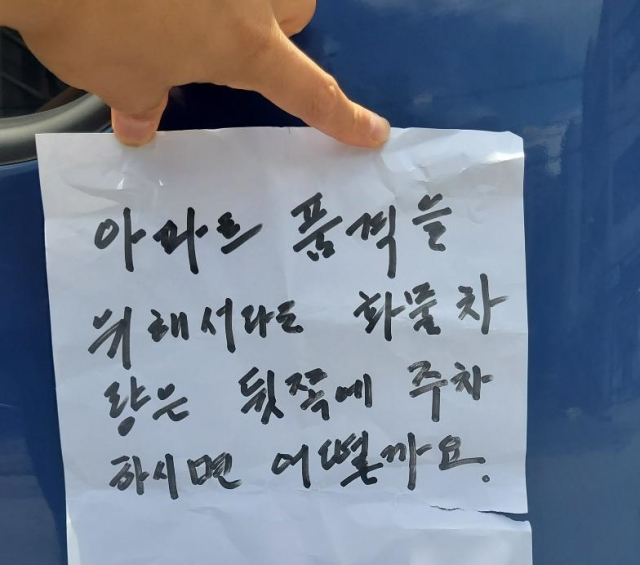 아파트 품격을
위해서라도 화물차
량은 뒷쪽에 주차
하시면 어떨까요.